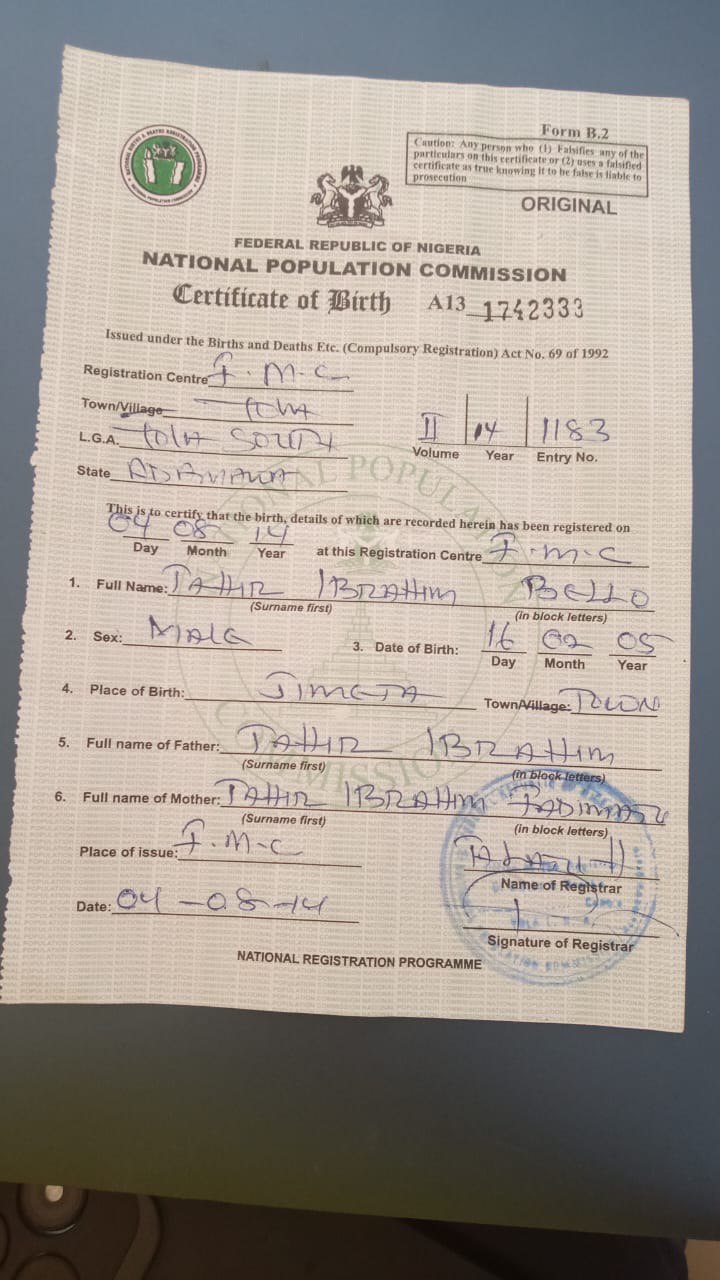 Form B.2
Caution: Any person who (1) Falsifies any of the
particulars on this certificate or (2) uses a falsified
certificate as true knowing it to be false is liable to
prosecution
ORIGINAL
FEDERAL REPUBLIC OF NIGERIA
NATIONAL POPULATION COMMISSION
Certificate of Birth A13 1742333
Issued under the Births and Deaths Etc. (Compulsory Registration) Act No. 69 of 1992
Registration Centre F.M.C
Town/Village YOLA
L.G.A. YOLA SOUTH
State ADAMAWA
II 14 1183
Volume Year Entry No.
This is to certify that the birth, details of which are recorded herein has been registered on
04 08 14 at this Registration Centre F.M.C
Day Month Year
1. Full Name: TAHIR IBRAHIM BELLO
(Surname first) (in block letters)
2. Sex: MALE 3. Date of Birth: 16 02 05
Day Month Year
4. Place of Birth: JIMETA Town/Village: TOWN
5. Full name of Father: TAHIR IBRAHIM
(Surname first) (in block letters)
6. Full name of Mother: TAHIR IBRAHIM
(Surname first) (in block letters)
Place of issue: F.M.C
Name of Registrar
Date: 04-08-14
Signature of Registrar
NATIONAL REGISTRATION PROGRAMME